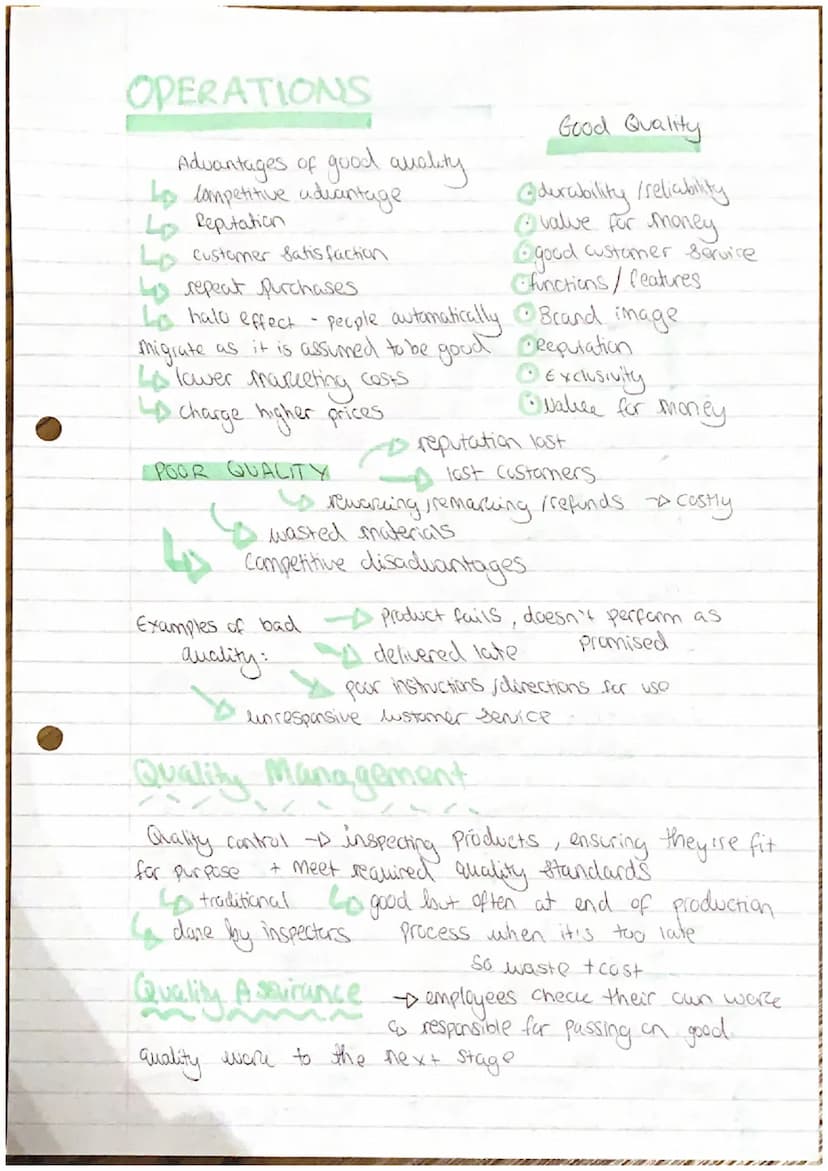 OPERATIONS
Good Quality
Advantages of good quality
competitive advantage
Reputation
customer satisfaction
repeat purchases
halo effect - people automatically
migrate as it is assumed to be good
lower marketing costs
charge higher prices
durability / reliability
value for money
good customer service
functions / features
Brand image
Reputation
Exclusivity
Value for money
POOR QUALITY
reputation lost
lost customers
reworking /remarking /refunds → costly
wasted materials
Competitive disadvantages
Examples of bad
quality:
product fails, doesn't perform as
promised
delivered late
poor instructions /directions for use
unresponsive customer service
Quality Management
Quality control → inspecting products, ensuring they're fit
for purpose + meet required quality standards
traditional
done by inspectors
good but often at end of production
process when it's too late
so waste + cost
Quality Assurance
→ employees check their own work
↳ responsible for passing on good
quality work to the next stage